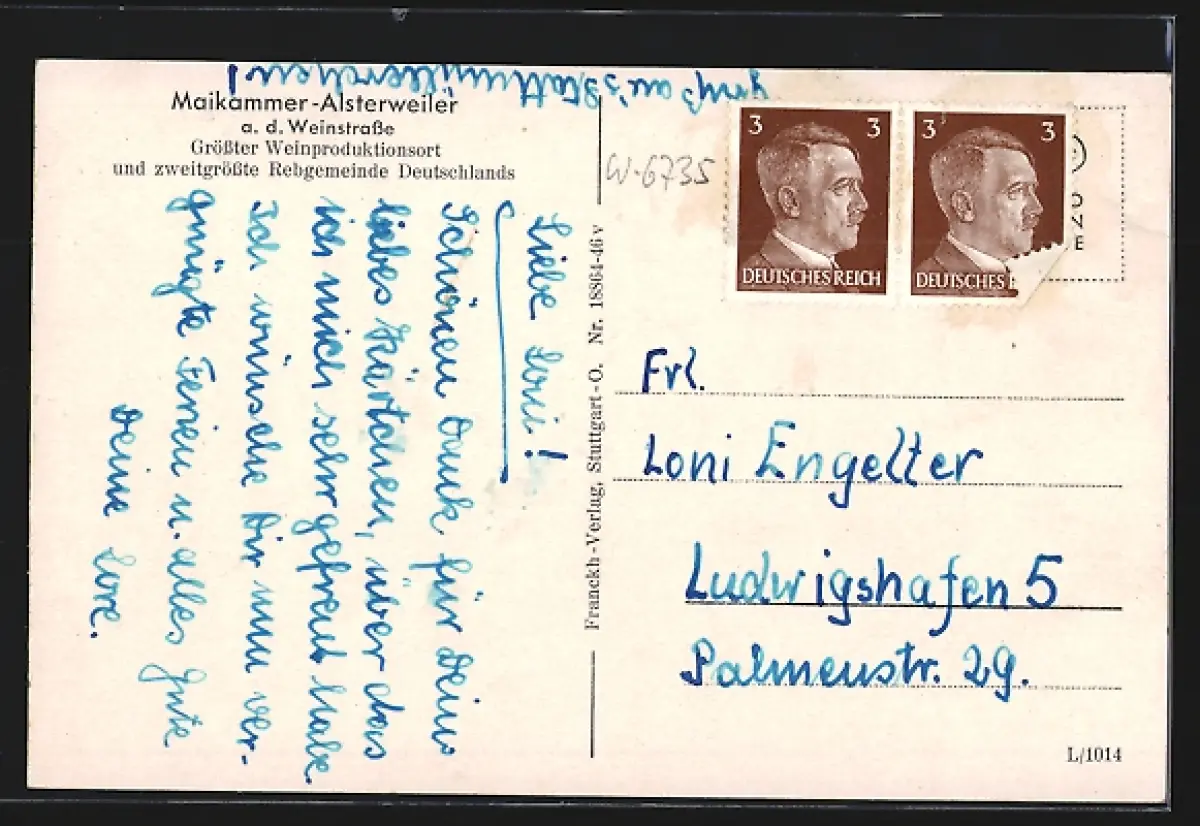 gruß au's Blattmüllerchen!
Maikammer-Alsterweiler
a. d. Weinstraße
Größter Weinproduktionsort
und zweitgrößte Rebgemeinde Deutschlands
Liebe Loni!
Schönen Dank für Dein
liebes Kärtchen, über das
ich mich sehr gefreut habe.
Ich wünsche Dir nun ver-
gnügte Ferien u. alles Gute
Deine Lore.
Franckh-Verlag, Stuttgart-O. Nr. 18864-46v
W-6735
3 3
DEUTSCHES REICH
3 3
DEUTSCHES R
Frl.
Loni Engelter
Ludwigshafen 5
Palmenstr. 29.
L/1014